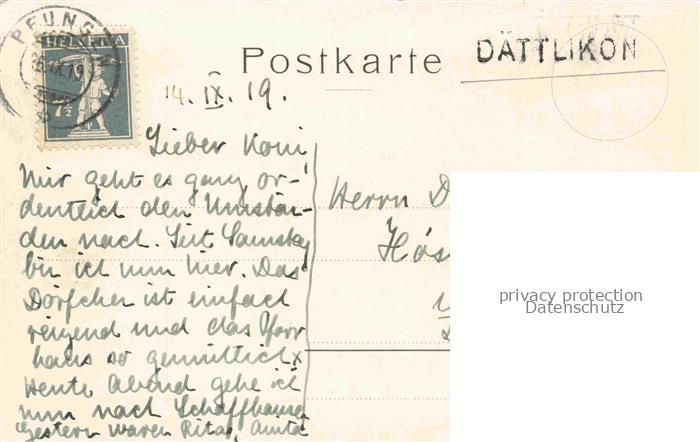 PFUNGEN
HELVETIA
IX.19
7½
Postkarte
DÄTTLIKON
14. IX. 19.
Lieber Koni
Mir geht es ganz or-
dentlich den Umstän-
den nach. Seit Samstag
bin ich nun hier. Das
Dörfchen ist einfach
reizend und das Pfarr
haus so gemütlich
Heute Abend gehe ich
nun nach Schaffhausen
Gestern waren Ritas, Anita
Herrn D
Hös
privacy protection
Datenschutz